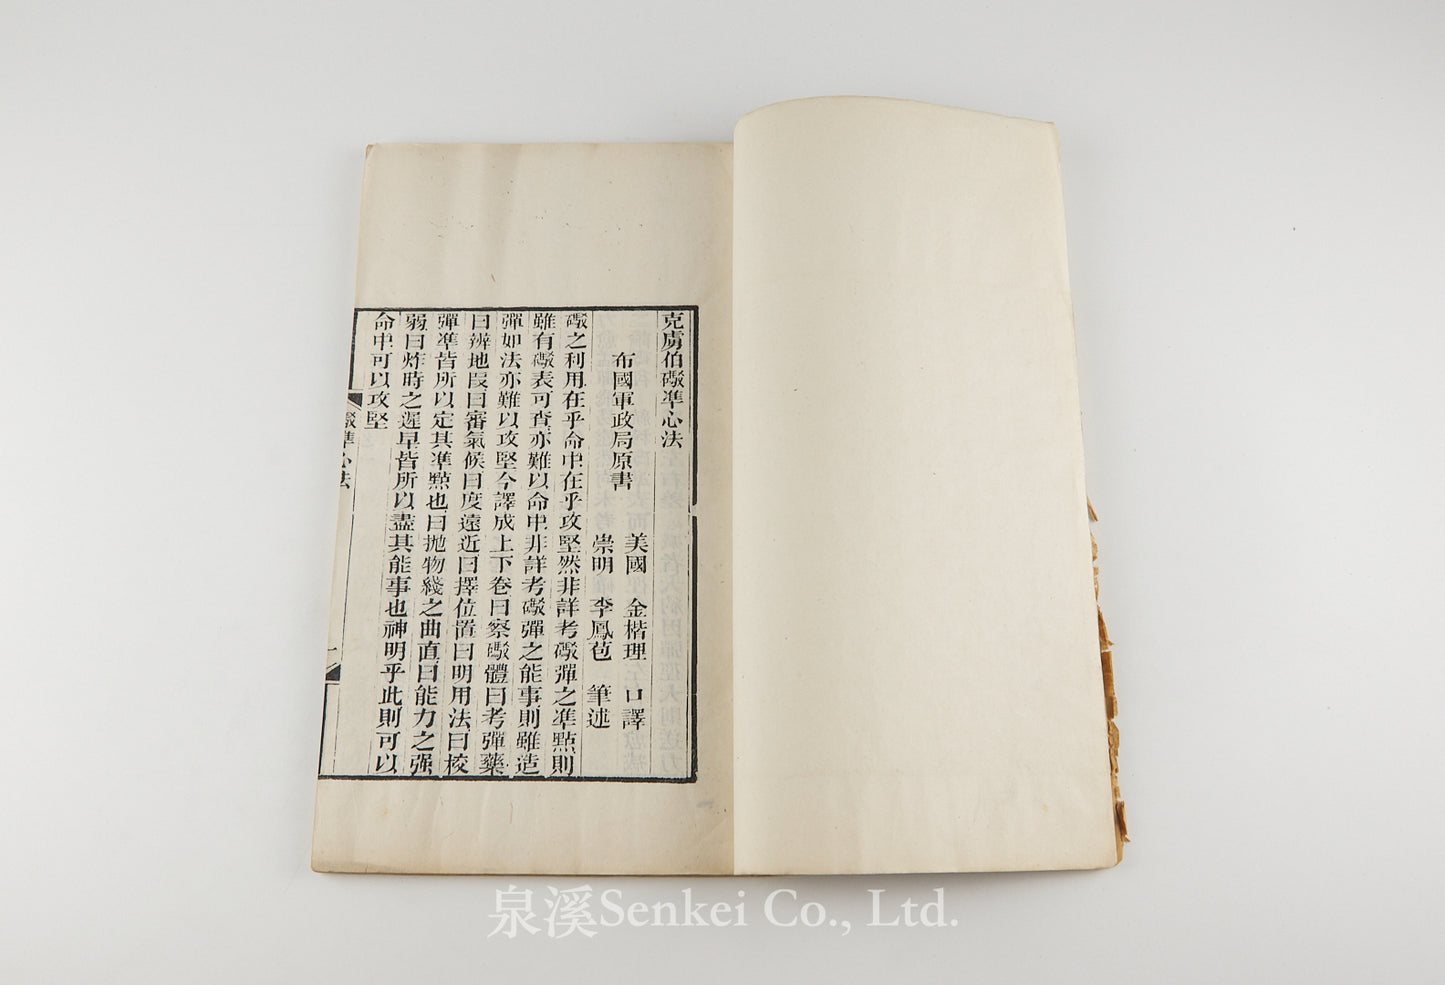 克虜伯礮準心法
布國軍政局原書
美國　金楷理　口譯
崇明　李鳳苞　筆述
礮之利用在乎命中在乎攻堅然非詳考礮彈之準㸃則
雖有礮表可查亦難以命中非詳考礮彈之能事則雖造
彈如法亦難以攻堅今譯成上下卷曰察礮體曰考彈藥
曰辨地叚曰審氣候曰度遠近曰擇位置曰明用法曰校
彈準皆所以定其準㸃也曰拋物綫之曲直曰能力之强
弱曰炸時之遲早皆所以盡其能事也神明乎此則可以
命中可以攻堅
礮準心法
一
泉溪Senkei Co., Ltd.